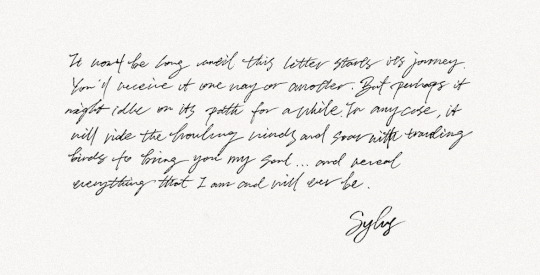 It won't be long until this letter starts its journey.
You'll receive it one way or another. But perhaps it
might idle on its path for a while. In any case, it
will ride the howling winds and soar with traveling
birds to bring you my soul... and reveal
everything that I am and will ever be.
Sylus